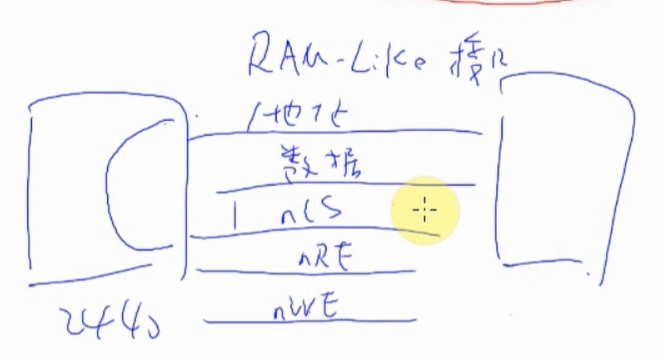 RAM-Like 接口
地址
数据
nCS
nRE
nWE
2440